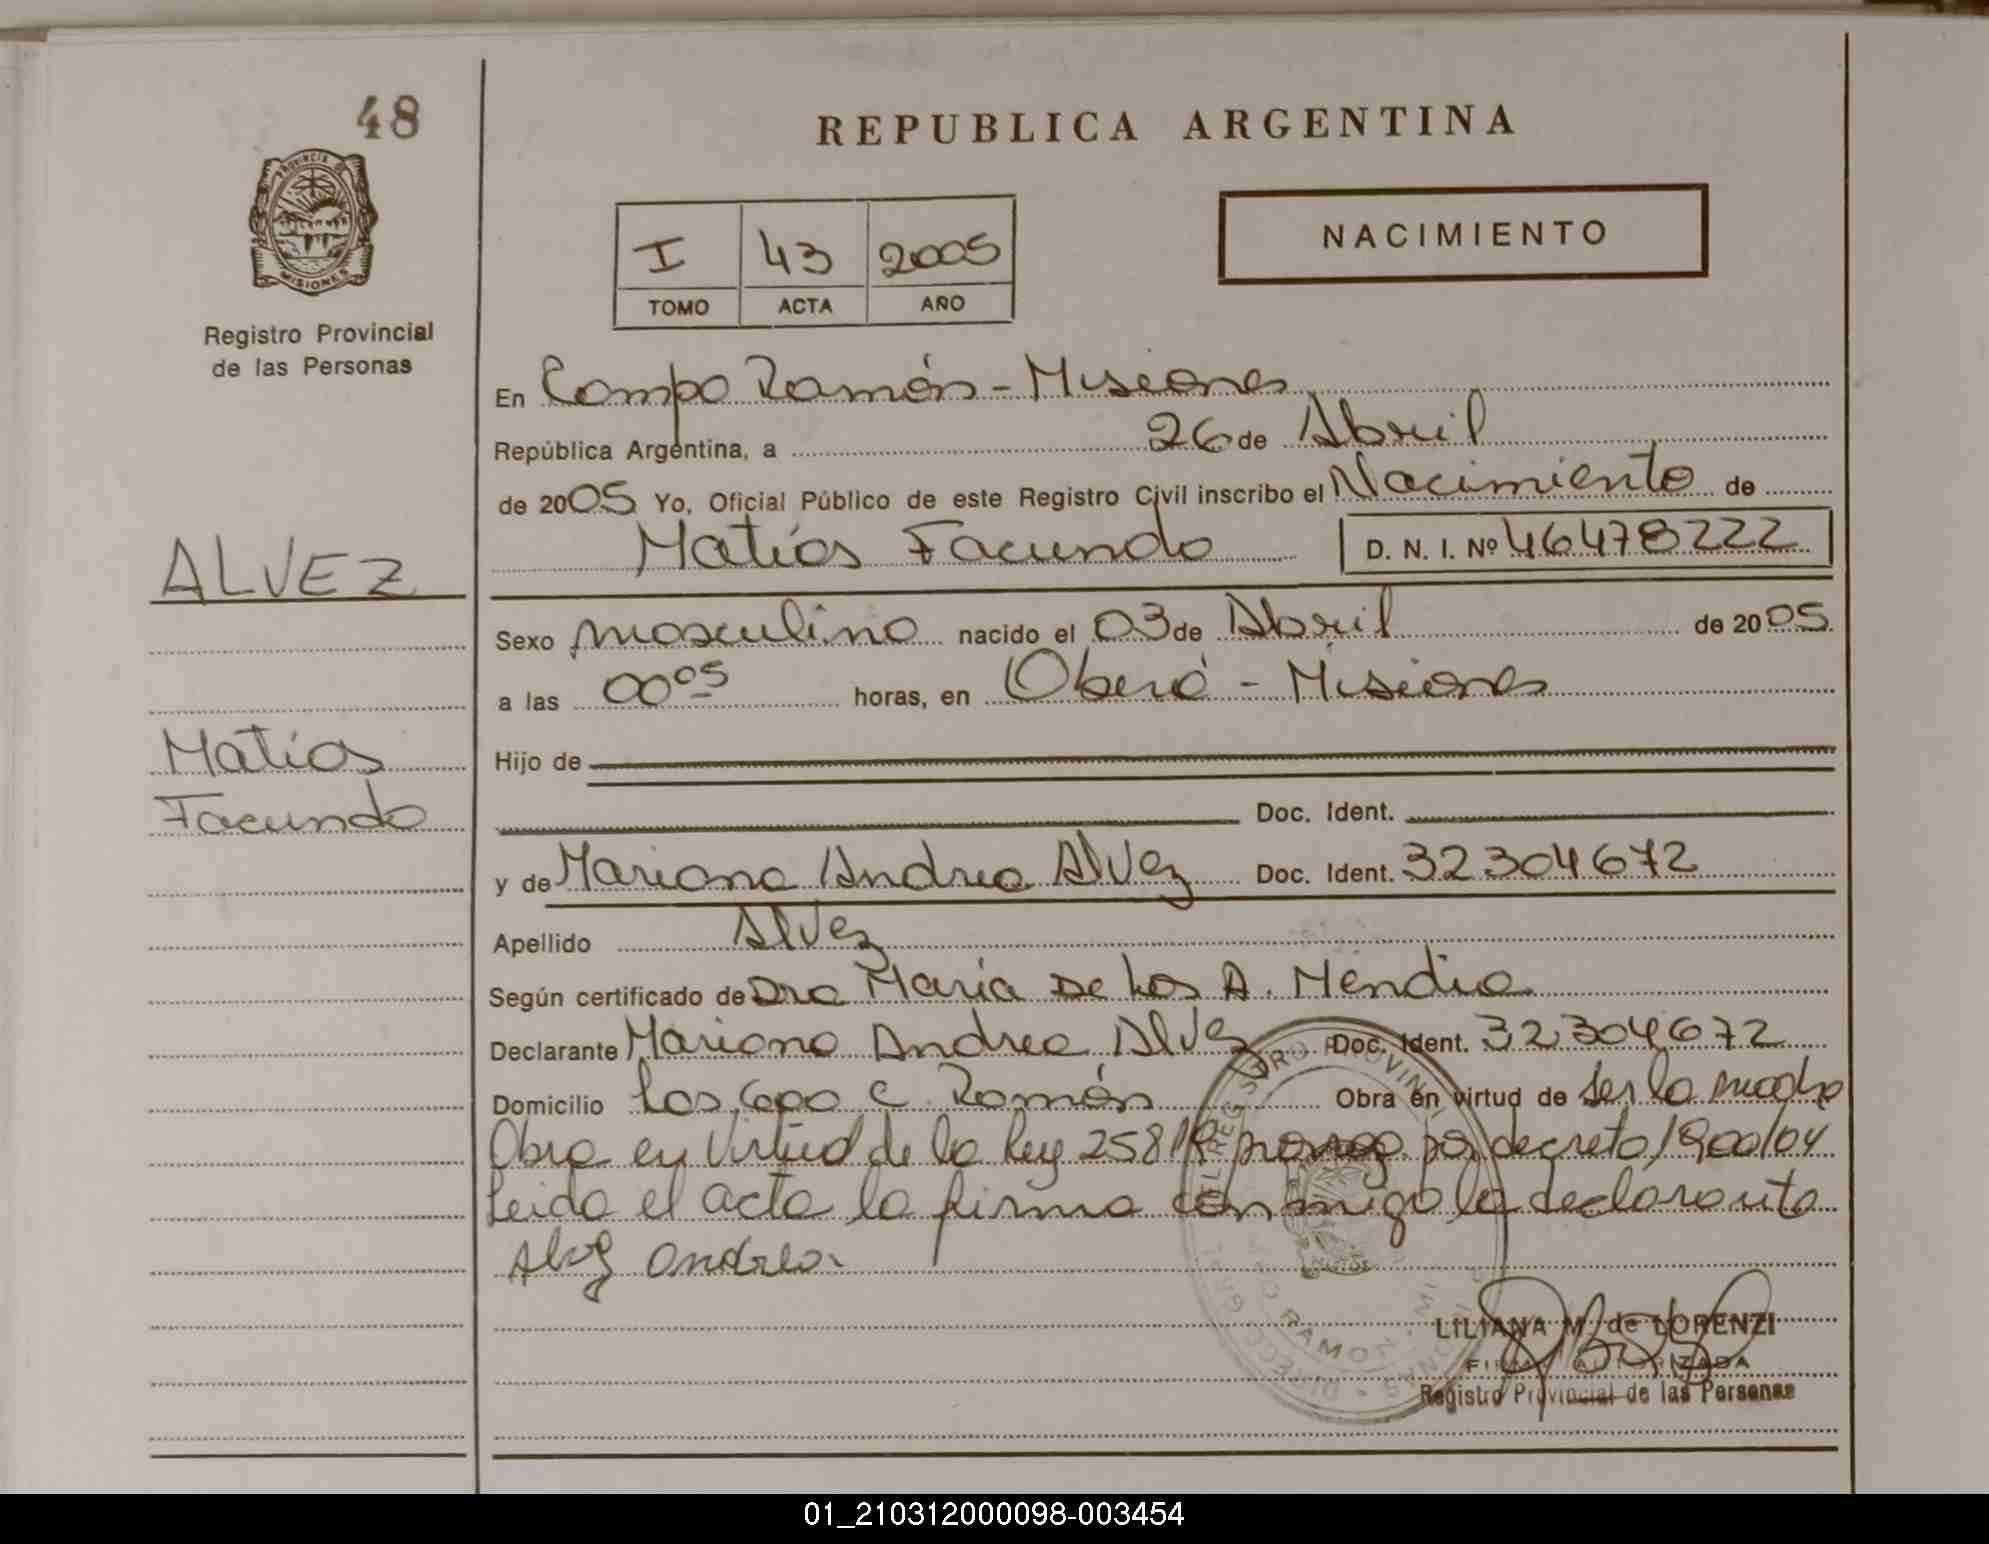 48
PROVINCIA DE
MISIONES
Registro Provincial
de las Personas
ALVEZ
Matías
Facundo
REPUBLICA ARGENTINA
I 43 2005
TOMO ACTA AÑO
NACIMIENTO
En Campo Ramón - Misiones
República Argentina, a 26 de Abril
de 2005 Yo, Oficial Público de este Registro Civil inscribo el Nacimiento de
Matías Facundo D. N. I. Nº 46478222
Sexo masculino nacido el 03 de Abril de 2005
a las 00 05 horas, en Oberá - Misiones
Hijo de
Doc. Ident.
y de Mariana Andrea Alvez Doc. Ident. 32304672
Apellido Alvez
Según certificado de Dra María De Los A. Mendia
Declarante Mariana Andrea Alvez Doc. Ident. 32304672
Domicilio Los C. Ramón Obra en virtud de ser la madre
Obra en Virtud de la ley 25819 por decreto 1900/04
Leida el acta la firma conmigo la declarante
Alvez Andrea
LILIANA M. de LORENZI
FIRMA AUTORIZADA
Registro Provincial de las Personas
01_210312000098-003454